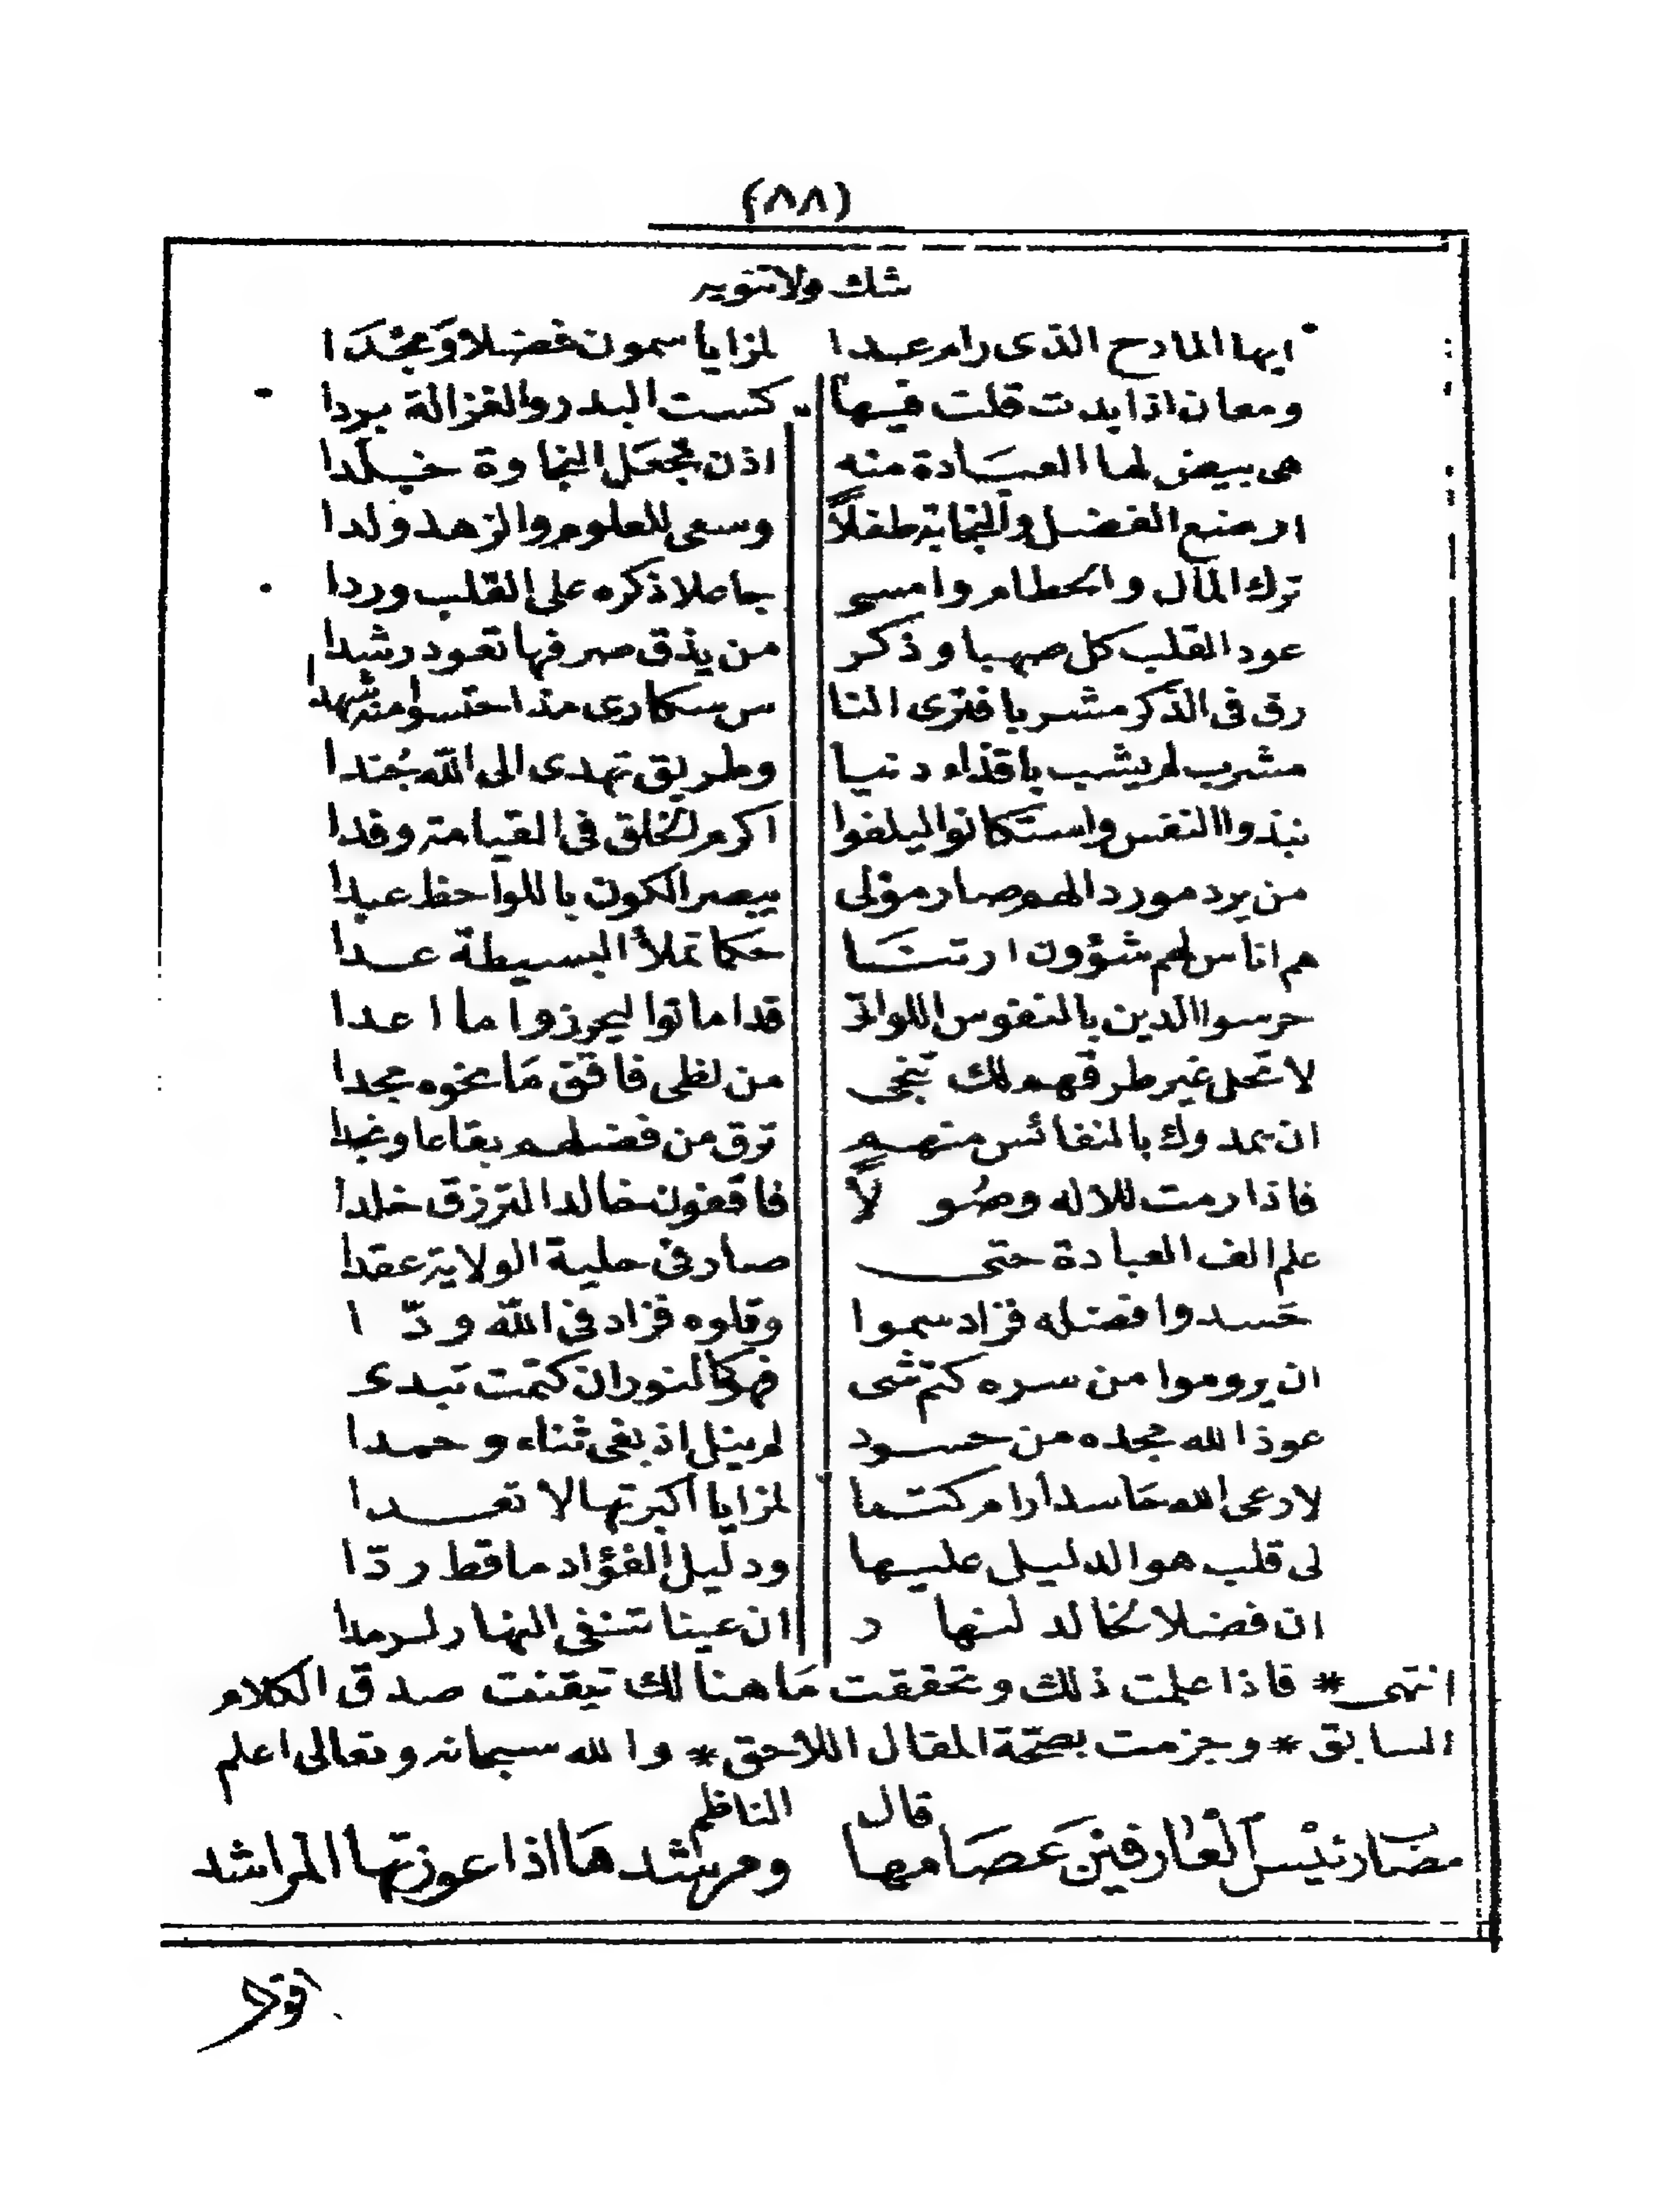 (٨٨)
شك ولا تمويه
ايها المادح الذى رام عدا لمزايا سمون فضلا وَمجْدَا
ومعان اذا بدت قلت فيها كست البدر والغزالة بردا
هى بيض لها العبَادة منه اذن تجعَل النجاوة خلدا
ارضع الفضل والنجابة طفلاً وسعى للعلوم والزهد ولدا
ترك المال والحطام وامسى جاعلا ذكره على القلب وردا
عود القلب كل صهباو ذكر من يذق صرفها تعود رشدا
رق فى الذكر مشربا فترى النا س سكارى مذ احتسوا منه شهدا
مشرب لم يشب باقذاء دنيا وطريق تهدى الى الله جُندا
نبذوا النفس واستكانوا ليلفوا اكرم الخلق فى القيامة وفدا
من يرد مورد الهم صار مولى يبصر الكون باللواحظ عبدا
هم اناس لهم شؤون ارتنَا حكما تملأ البسيطة عدا
حرسوا الدين بالنفوس اللواتى قد اماتوا ليحرزوا ما اعدا
لا تحل غير طرقهم لك تنجى من لظى فاقتق مَا نحوه مجدا
ان يمدوك بالنفائس منهم ترق من فضلهم بقاعا ونجدا
فاذا رمت للاله وصُولاً فاقفون خالدا لترزق خلدا
علم الف العبادة حتى صار فى حلية الولاية عقدا
حَسدوا فضله فزاد سموا وقلوه فزاد فى الله ودّا
ان يروموا من سره كتم شى فهو كالنور ان كتمت تبدى
عوذ الله مجده من حسود لم ينل اذ بغى ثناء وحمدا
لا رعى الله حَاسدا رام كتما لمزايا اكبرتها لا تعدا
لى قلب هو الدليل عليها ودليل الفؤاد ما قط ردّا
ان فضلا لخالد لنهار ان عينا تنفى النهار لرمدا
انتهى * فاذا علمت ذلك وتحققت مَا هنالك تيقنت صدق الكلام
السابق * وجزمت بصحة المقال اللاحق * والله سبحانه وتعالى اعلم
قال الناظم
مضَارئيْس العَارفيْن عَصَامها ومرشدهَا اذا عوزتها المراشد
اقول